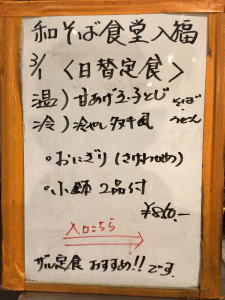 和そば食堂入福
3/1 〈日替定食〉
温)甘あげ玉子とじ
冷)冷やしタヌキ風
そば
うどん
。おにぎり(さけわかめ)
。小鉢2品付
¥860.-
入口こちら
ザル定食 おすすめ!!です